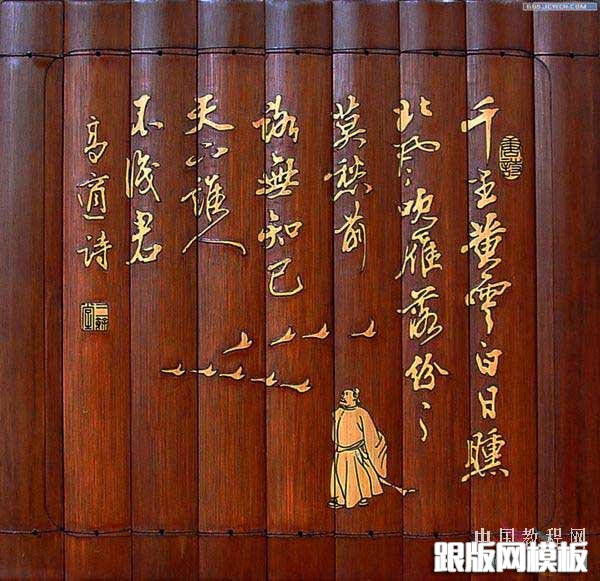 千里黄雲白日曛
北风吹雁雪纷々
莫愁前
路無知己
天下誰人
不識君
高適詩
BBS.JCWCN.COM
中国教程网
跟版网模板